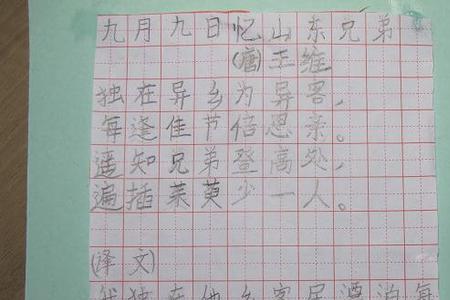 九月九日忆山东兄弟
(唐)王维
独在异乡为异客，
每逢佳节倍思亲。
遥知兄弟登高处，
遍插茱萸少一人。
(译文)
我独在他乡客居漂泊每